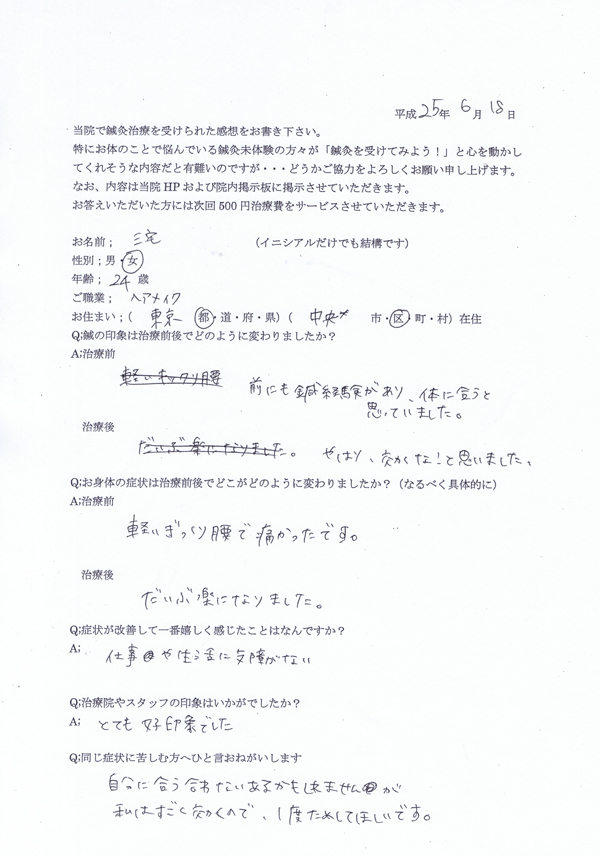 平成25年 6月 18日
当院で鍼灸治療を受けられた感想をお書き下さい。
特にお体のことで悩んでいる鍼灸未体験の方々が「鍼灸を受けてみよう！」と心を動かし
てくれそうな内容だと有難いのですが・・・どうかご協力をよろしくお願い申し上げます。
なお、内容は当院 HP および院内掲示板に掲示させていただきます。
お答えいただいた方には次回 500 円治療費をサービスさせていただきます。
お名前； 三宅 （イニシアルだけでも結構です）
性別；男・女
年齢； 24 歳
ご職業； ヘアメイク
お住まい；（ 東京 都・道・府・県）（ 中央 市・区・町・村）在住
Q;鍼の印象は治療前後でどのように変わりましたか？
A;治療前
軽いギックリ腰 前にも鍼経験があり、体に合うと
思っていました。
治療後
だいぶ楽になりました。 やはり、効くな！と思いました、
Q;お身体の症状は治療前後でどこがどのように変わりましたか？（なるべく具体的に）
A;治療前
軽いぎっくり腰で痛かったです。
治療後
だいぶ楽になりました。
Q;症状が改善して一番嬉しく感じたことはなんですか？
A; 仕事や生活に支障がない
Q;治療院やスタッフの印象はいかがでしたか？
A; とても好印象でした
Q;同じ症状に苦しむ方へひと言おねがいします
自分に合う合わないあるかもしれませんが
私はすごく効くので、1度ためしてほしいです。